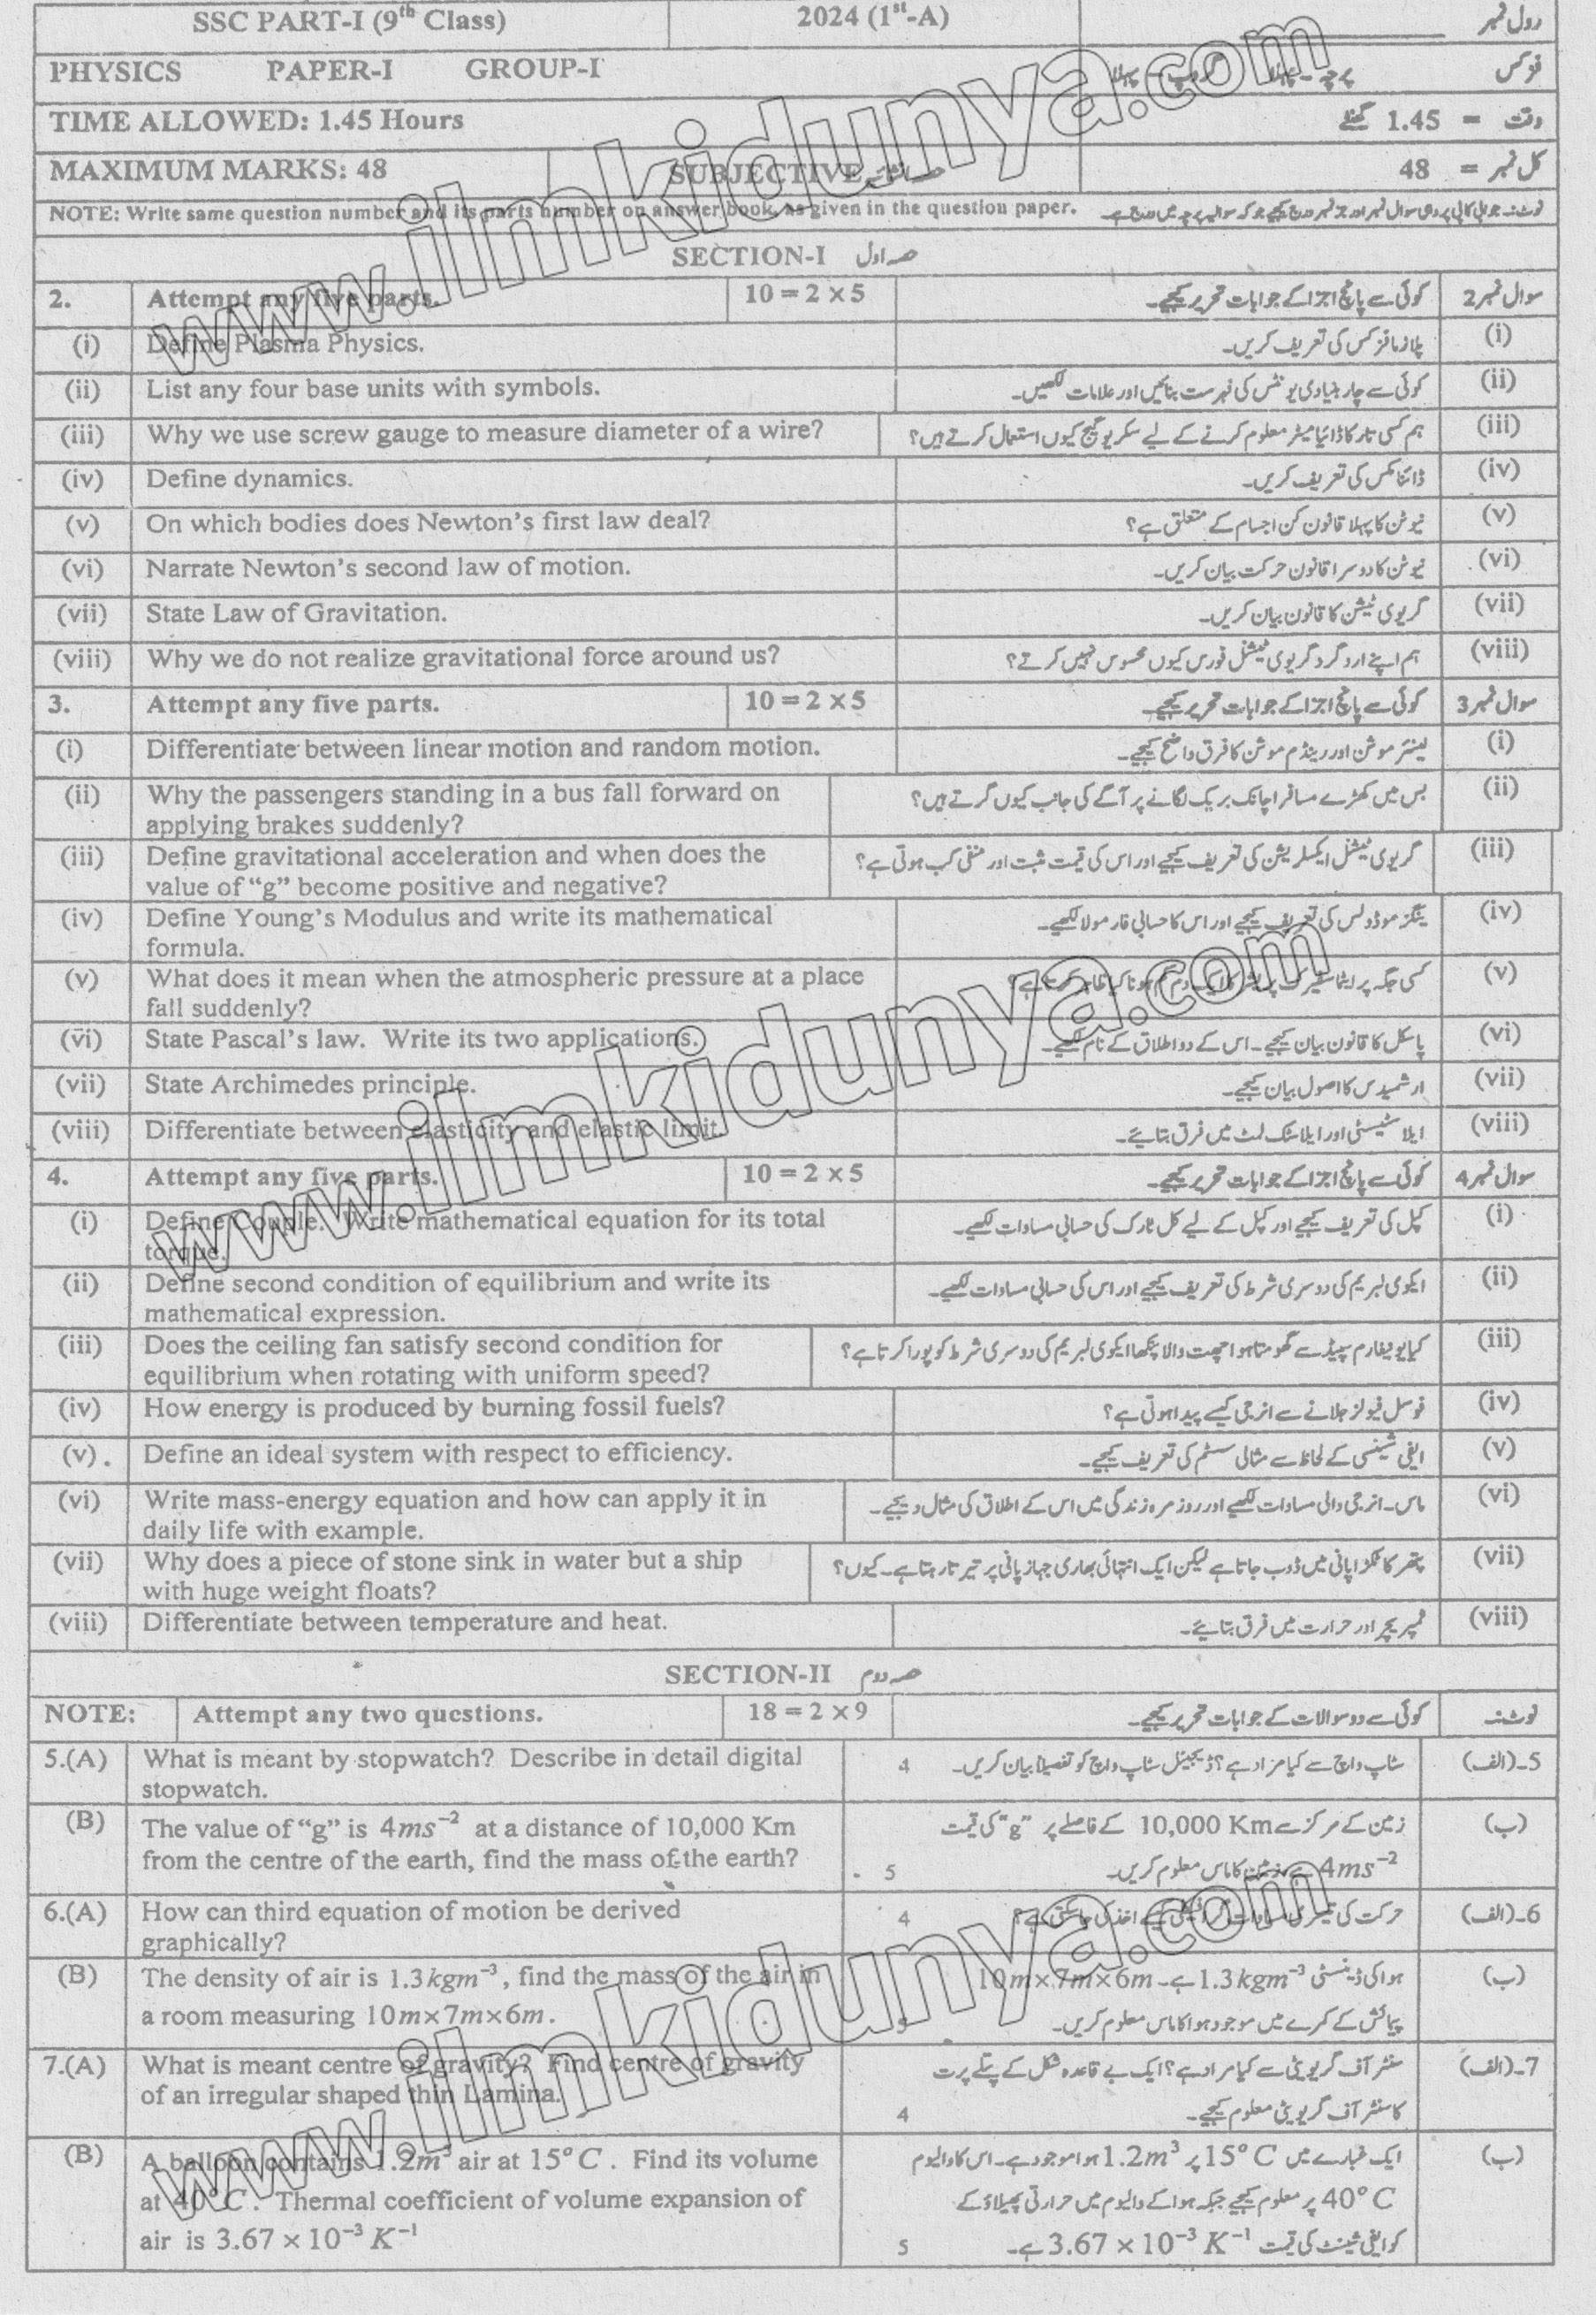 SSC PART-I (9th Class) 2024 (1st-A) رول نمبر
PHYSICS PAPER-I GROUP-I فزکس پرچہ - پہلا گروپ - پہلا
TIME ALLOWED: 1.45 Hours وقت = 1.45 گھنٹے
MAXIMUM MARKS: 48 SUBJECTIVE حصہ انشائیہ کل نمبر = 48
NOTE: Write same question number and its parts number on answer book, as given in the question paper. نوٹ۔ جوابی کاپی پر وہی سوال نمبر اور جز نمبر درج کیجیے جو کہ سوالیہ پرچہ میں درج ہے۔
SECTION-I حصہ اول
2. Attempt any five parts. 10 = 2 × 5 کوئی سے پانچ اجزا کے جوابات تحریر کیجیے۔ سوال نمبر 2
(i) Define Plasma Physics. پلازما فزکس کی تعریف کریں۔ (i)
(ii) List any four base units with symbols. کوئی سے چار بنیادی یونٹس کی فہرست بنائیں اور علامات لکھیں۔ (ii)
(iii) Why we use screw gauge to measure diameter of a wire? ہم کسی تار کا ڈایا میٹر معلوم کرنے کے لیے سکریو گیج کیوں استعمال کرتے ہیں؟ (iii)
(iv) Define dynamics. ڈائنامکس کی تعریف کریں۔ (iv)
(v) On which bodies does Newton's first law deal? نیوٹن کا پہلا قانون کن اجسام کے متعلق ہے؟ (v)
(vi) Narrate Newton's second law of motion. نیوٹن کا دوسرا قانون حرکت بیان کریں۔ (vi)
(vii) State Law of Gravitation. گریوی ٹیشن کا قانون بیان کریں۔ (vii)
(viii) Why we do not realize gravitational force around us? ہم اپنے ارد گرد گریوی ٹیشنل فورس کیوں محسوس نہیں کرتے؟ (viii)
3. Attempt any five parts. 10 = 2 × 5 کوئی سے پانچ اجزا کے جوابات تحریر کیجیے۔ سوال نمبر 3
(i) Differentiate between linear motion and random motion. لینئر موشن اور رینڈم موشن کا فرق واضح کیجیے۔ (i)
(ii) Why the passengers standing in a bus fall forward on بس میں کھڑے مسافر اچانک بریک لگانے پر آگے کی جانب کیوں گرتے ہیں؟ (ii)
applying brakes suddenly?
(iii) Define gravitational acceleration and when does the گریوی ٹیشنل ایکسلریشن کی تعریف کیجیے اور اس کی قیمت مثبت اور منفی کب ہوتی ہے؟ (iii)
value of "g" become positive and negative?
(iv) Define Young's Modulus and write its mathematical ینگز موڈولس کی تعریف کیجیے اور اس کا حسابی فارمولا لکھیے۔ (iv)
formula.
(v) What does it mean when the atmospheric pressure at a place کسی جگہ پر ایٹماسفیرک پریشر کا ایک دم کم ہونا کیا ظاہر کرتا ہے؟ (v)
fall suddenly?
(vi) State Pascal's law. Write its two applications. پاسکل کا قانون بیان کیجیے۔ اس کے دو اطلاق کے نام لکھیے۔ (vi)
(vii) State Archimedes principle. ارشمیدس کا اصول بیان کیجیے۔ (vii)
(viii) Differentiate between elasticity and elastic limit. ایلاسٹیسٹی اور ایلاسٹک لمٹ میں فرق بتائیے۔ (viii)
4. Attempt any five parts. 10 = 2 × 5 کوئی سے پانچ اجزا کے جوابات تحریر کیجیے۔ سوال نمبر 4
(i) Define Couple. Write mathematical equation for its total کپل کی تعریف کیجیے اور کپل کے لیے کل ٹارک کی حسابی مساوات لکھیے۔ (i)
torque.
(ii) Define second condition of equilibrium and write its ایکوی لبریم کی دوسری شرط کی تعریف کیجیے اور اس کی حسابی مساوات لکھیے۔ (ii)
mathematical expression.
(iii) Does the ceiling fan satisfy second condition for کیا یونیفارم سپیڈ سے گھومتا ہوا چھت والا پنکھا ایکوی لبریم کی دوسری شرط کو پورا کرتا ہے؟ (iii)
equilibrium when rotating with uniform speed?
(iv) How energy is produced by burning fossil fuels? فوسل فیولز جلانے سے انرجی کیسے پیدا ہوتی ہے؟ (iv)
(v). Define an ideal system with respect to efficiency. ایفی شینسی کے لحاظ سے مثالی سسٹم کی تعریف کیجیے۔ (v)
(vi) Write mass-energy equation and how can apply it in ماس۔انرجی والی مساوات لکھیے اور روز مرہ زندگی میں اس کے اطلاق کی مثال دیجیے۔ (vi)
daily life with example.
(vii) Why does a piece of stone sink in water but a ship پتھر کا ٹکڑا پانی میں ڈوب جاتا ہے لیکن ایک انتہائی بھاری جہاز پانی پر تیرتا رہتا ہے۔ کیوں؟ (vii)
with huge weight floats?
(viii) Differentiate between temperature and heat. ٹمپریچر اور حرارت میں فرق بتائیے۔ (viii)
SECTION-II حصہ دوم
NOTE: Attempt any two questions. 18 = 2 × 9 کوئی سے دو سوالات کے جوابات تحریر کیجیے۔ نوٹ۔
5.(A) What is meant by stopwatch? Describe in detail digital 4 سٹاپ واچ سے کیا مراد ہے؟ ڈیجیٹل سٹاپ واچ کو تفصیلاً بیان کریں۔ 5۔(الف)
stopwatch.
(B) The value of "g" is 4ms⁻² at a distance of 10,000 Km زمین کے مرکز سے 10,000 Km کے فاصلے پر "g" کی قیمت (ب)
from the centre of the earth, find the mass of the earth? 5 4ms⁻² ہے۔ زمین کا ماس معلوم کریں۔
6.(A) How can third equation of motion be derived 4 حرکت کی تیسری مساوات گرافیکلی کیسے اخذ کی جا سکتی ہے؟ 6۔(الف)
graphically?
(B) The density of air is 1.3kgm⁻³, find the mass of the air in ہوا کی ڈینسٹی 1.3kgm⁻³ ہے۔ 10m×7m×6m (ب)
a room measuring 10m×7m×6m. 5 پیمائش کے کمرے میں موجود ہوا کا ماس معلوم کریں۔
7.(A) What is meant centre of gravity? Find centre of gravity سنٹر آف گریویٹی سے کیا مراد ہے؟ ایک بے قاعدہ شکل کے پتلے پرت 7۔(الف)
of an irregular shaped thin Lamina. 4 کا سنٹر آف گریویٹی معلوم کیجیے۔
(B) A balloon contains 1.2m³ air at 15°C. Find its volume ایک غبارے میں 15°C پر 1.2m³ ہوا موجود ہے۔ اس کا والیوم (ب)
at 40°C. Thermal coefficient of volume expansion of 40°C پر معلوم کیجیے جبکہ ہوا کے والیوم میں حرارتی پھیلاؤ کے
air is 3.67 × 10⁻³ K⁻¹ 5 کوایفی شینٹ کی قیمت 3.67 × 10⁻³ K⁻¹ ہے۔
www.ilmkidunya.com
www.ilmkidunya.com
www.ilmkidunya.com